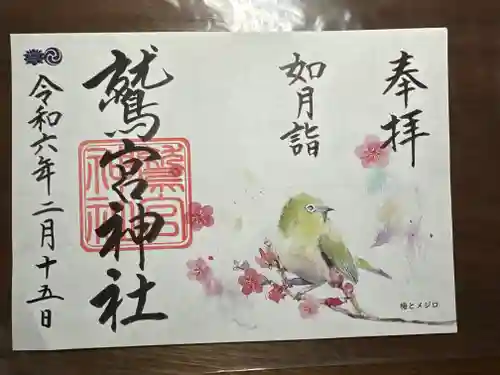 奉拝
如月詣
鷲宮神社
令和六年二月十五日
梅とメジロ